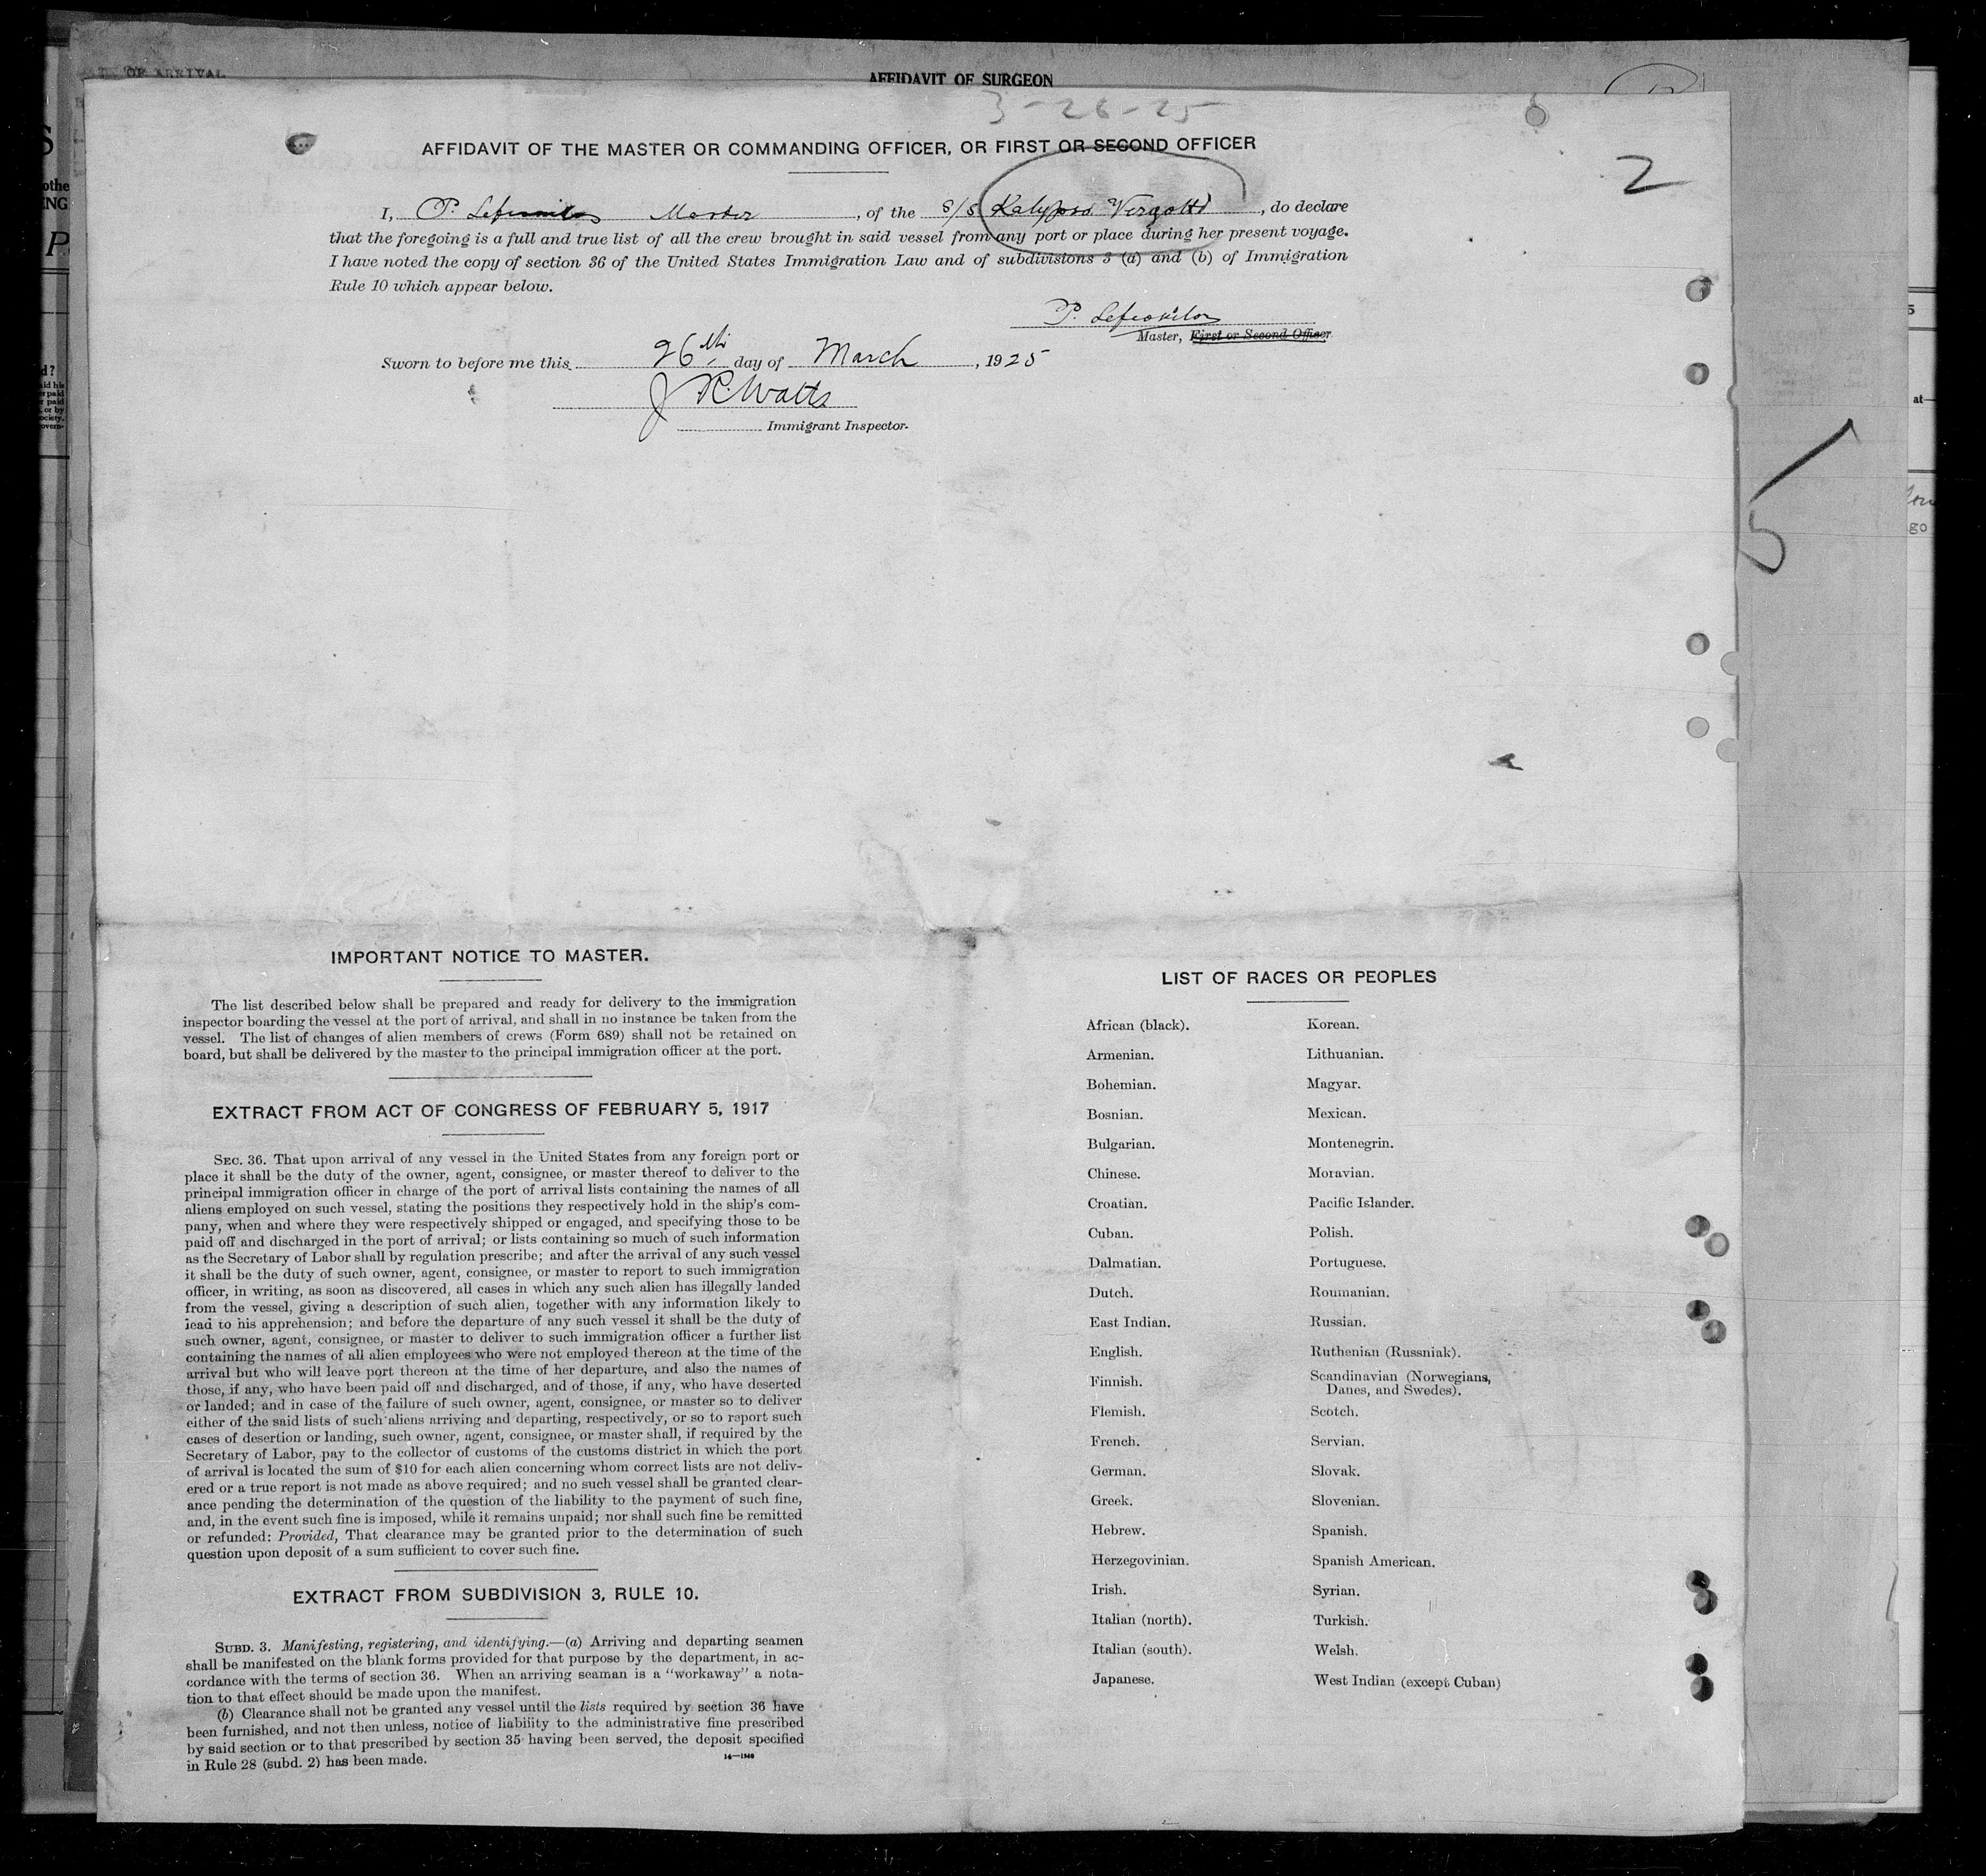 OF ARRIVAL
AFFIDAVIT OF SURGEON
3-26-25
AFFIDAVIT OF THE MASTER OR COMMANDING OFFICER, OR FIRST OR SECOND OFFICER
2
I, P. Master, of the S/S Kalypso Vergotti, do declare
that the foregoing is a full and true list of all the crew brought in said vessel from any port or place during her present voyage.
I have noted the copy of section 36 of the United States Immigration Law and of subdivisions 3 (a) and (b) of Immigration
Rule 10 which appear below.
P.
Master, First or Second Officer.
Sworn to before me this 26th day of March, 1925
Watts
Immigrant Inspector.
5
IMPORTANT NOTICE TO MASTER.
The list described below shall be prepared and ready for delivery to the immigration
inspector boarding the vessel at the port of arrival, and shall in no instance be taken from the
vessel. The list of changes of alien members of crews (Form 689) shall not be retained on
board, but shall be delivered by the master to the principal immigration officer at the port.
EXTRACT FROM ACT OF CONGRESS OF FEBRUARY 5, 1917
SEC. 36. That upon arrival of any vessel in the United States from any foreign port or
place it shall be the duty of the owner, agent, consignee, or master thereof to deliver to the
principal immigration officer in charge of the port of arrival lists containing the names of all
aliens employed on such vessel, stating the positions they respectively hold in the ship's com-
pany, when and where they were respectively shipped or engaged, and specifying those to be
paid off and discharged in the port of arrival; or lists containing so much of such information
as the Secretary of Labor shall by regulation prescribe; and after the arrival of any such vessel
it shall be the duty of such owner, agent, consignee, or master to report to such immigration
officer, in writing, as soon as discovered, all cases in which any such alien has illegally landed
from the vessel, giving a description of such alien, together with any information likely to
lead to his apprehension; and before the departure of any such vessel it shall be the duty of
such owner, agent, consignee, or master to deliver to such immigration officer a further list
containing the names of all alien employees who were not employed thereon at the time of the
arrival but who will leave port thereon at the time of her departure, and also the names of
those, if any, who have been paid off and discharged, and of those, if any, who have deserted
or landed; and in case of the failure of such owner, agent, consignee, or master so to deliver
either of the said lists of such aliens arriving and departing, respectively, or so to report such
cases of desertion or landing, such owner, agent, consignee, or master shall, if required by the
Secretary of Labor, pay to the collector of customs of the customs district in which the port
of arrival is located the sum of $10 for each alien concerning whom correct lists are not deliv-
ered or a true report is not made as above required; and no such vessel shall be granted clear-
ance pending the determination of the question of the liability to the payment of such fine,
and, in the event such fine is imposed, while it remains unpaid; nor shall such fine be remitted
or refunded: Provided, That clearance may be granted prior to the determination of such
question upon deposit of a sum sufficient to cover such fine.
EXTRACT FROM SUBDIVISION 3, RULE 10.
SUBD. 3. Manifesting, registering, and identifying.—(a) Arriving and departing seamen
shall be manifested on the blank forms provided for that purpose by the department, in ac-
cordance with the terms of section 36. When an arriving seaman is a "workaway" a nota-
tion to that effect should be made upon the manifest.
(b) Clearance shall not be granted any vessel until the lists required by section 36 have
been furnished, and not then unless, notice of liability to the administrative fine prescribed
by said section or to that prescribed by section 35 having been served, the deposit specified
in Rule 28 (subd. 2) has been made.
LIST OF RACES OR PEOPLES
African (black). Korean.
Armenian. Lithuanian.
Bohemian. Magyar.
Bosnian. Mexican.
Bulgarian. Montenegrin.
Chinese. Moravian.
Croatian. Pacific Islander.
Cuban. Polish.
Dalmatian. Portuguese.
Dutch. Roumanian.
East Indian. Russian.
English. Ruthenian (Russniak).
Finnish. Scandinavian (Norwegians,
Danes, and Swedes).
Flemish. Scotch.
French. Servian.
German. Slovak.
Greek. Slovenian.
Hebrew. Spanish.
Herzegovinian. Spanish American.
Irish. Syrian.
Italian (north). Turkish.
Italian (south). Welsh.
Japanese. West Indian (except Cuban)